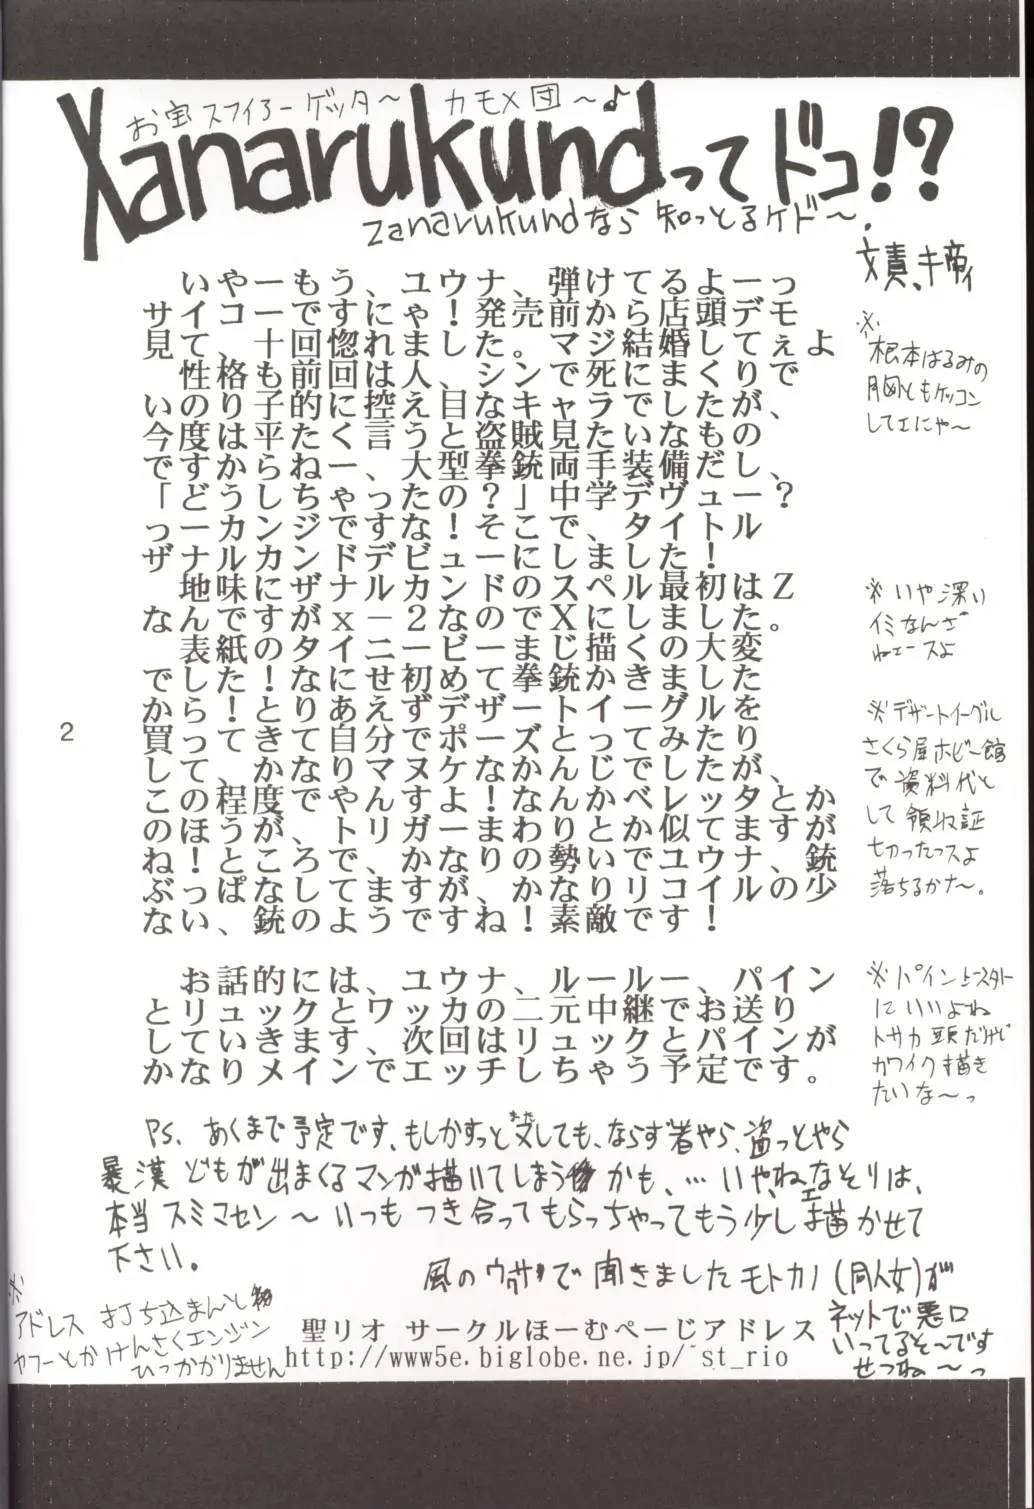 お宝スフィアーゲッター〜 カモメ団〜♪
Xanarukundってドコ!?
Zanarukundなら 知っとるケドー〜.
文責、キ帝イ
いやーもう、ユウナ、弾けてるよーっ
サイコーですにゃ！発売前から店頭デモ
見て、十回惚れました。マジ結婚してぇよ
性格も前回は人、シンで死にまくりで、
いのり子的に控え目なキャラでしたが、
今度は平たく言うと盗賊見たいなもの、
ですからねー、大型拳銃両手装備だし？
「どうしちゃったの？」中学デヴュー
っーカンジですな！そこで、タイトル
ザナルカンドデビューにしました！
地味にザナルカンドのスペル最初はＺ
なんですがｘ－２なのでＸにしました。
表紙のタイ二一ビーまじ描くの大変
でした！なにせ初めて拳銃かきました
からってとりあえずデザートイーグルを
買って、きて自分でポーズとってみたり
してかなりマヌケなかんじでしたが、
この程度でやんすよ！なんかべレッタとか
のほうが、トリガーまわりとか似てますが
ね！ところで、かなりの勢いでユウナ、銃
ぶっぱなしてますが、かなりリコイルの少
ない、銃のようですね！素敵です！
お話的には、ユウナ、ルールー、パイン
とリュックとワッカの二元中継でお送り
していきます、次回はリュックとパインが
かなりメインでエッチしちゃう予定です。
※根本はるみの
胸ともケッコン
してェにゃ〜
※いや深い
イミなんざ
ねェースよ
※デザートイーグル
さくら屋ホビー館
で資料代と
して領収証
切ったっスよ
落ちるかナ〜。
※パイン
にいいよね
トサカ頭だけど
カワイク描き
たいな〜っ
2
PS、あくまで予定です、もしかすっと又しても、ならず者やら、盗っとやら
また
暴漢どもが出まくるマンガ描いてしまうかも、… いやねェなそりは、
本当スミマセン〜いつもつき合ってもらっちゃってもう少し描かせて
下さい。
風のウワサで聞きましたモトカノ(同人女)が
ネットで悪口
いってるそ〜です
せつね〜っ
※アドレス 打ち込まんとし
ヤフーとかけんさくエンジン
ひっかかりません
聖リオ サークルほーむぺーじアドレス
http://www5e.biglobe.ne.jp/~st_rio